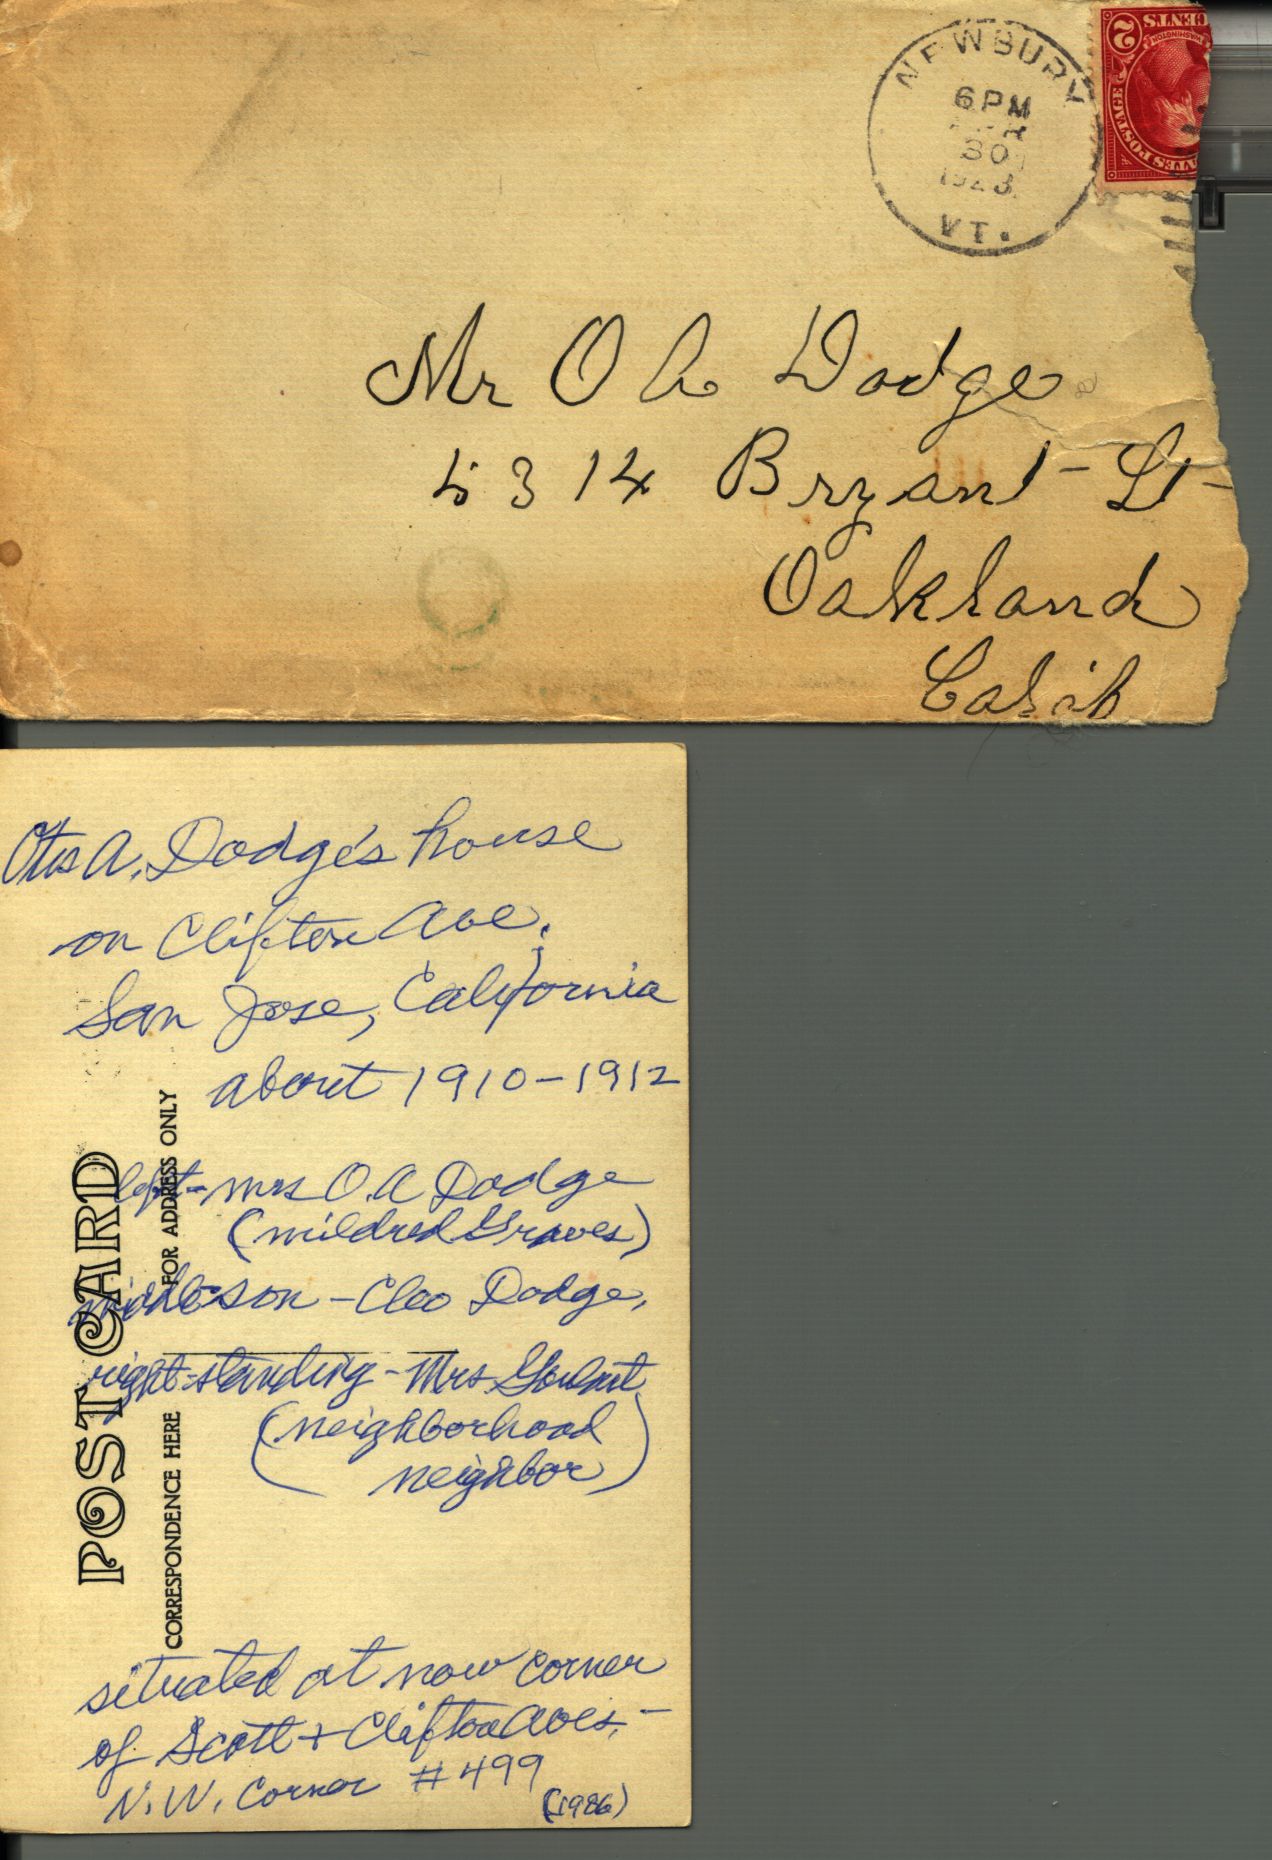 NEWBURY
6 PM
30
1923
VT.
2 CENTS 2
WASHINGTON
POSTAGE
Mr O A Dodge
5314 Bryant St
Oakland
Calif
Otis A. Dodge's house
on Clifton Ave.
San Jose, California
about 1910-1912
left - Mrs O.A Dodge
(Mildred Graves)
middle - son - Cleo Dodge,
right - standing - Mrs
(neighborhood
neighbor)
situated at now corner
of Scott + Clifton Aves. -
N.W. Corner #499
(1986)
POST CARD
CORRESPONDENCE HERE
FOR ADDRESS ONLY